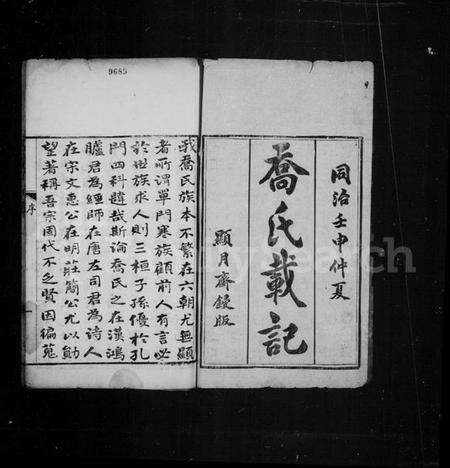 9685
同治壬申仲夏
喬氏載記
顯月齋鋟版
我喬氏族本不繁在六朝尤無顯
者所謂單門寒族顧前人有言必
於世族求人則三桓子孫優於孔
門四科韙哉斯論喬氏之在漢鴻
臚君為經師在唐左司君為詩人
在宋文惠公在明莊簡公尤以勛
望著稱吾宗固代不乏賢因編蒐
序